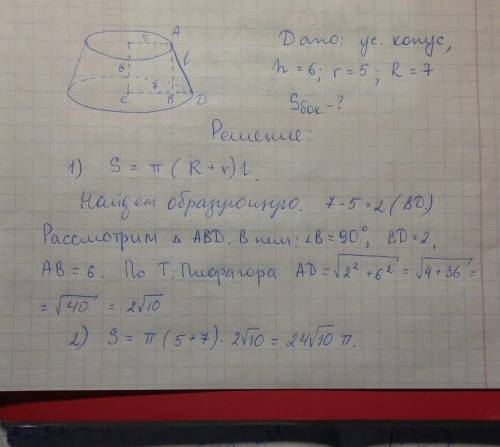 5 A
6 l
7
C B D
Дано: ус. конус,
h = 6; r = 5; R = 7
Sбок - ?
Решение:
1) S = π (R + r) l.
Найдем образующую. 7 - 5 = 2 (BD)
Рассмотрим △ ABD. В нем: ∠B = 90°, BD = 2,
AB = 6. По Т. Пифагора AD = √(2² + 6²) = √(4 + 36) =
= √40 = 2√10
2) S = π (5 + 7) · 2√10 = 24√10 π.